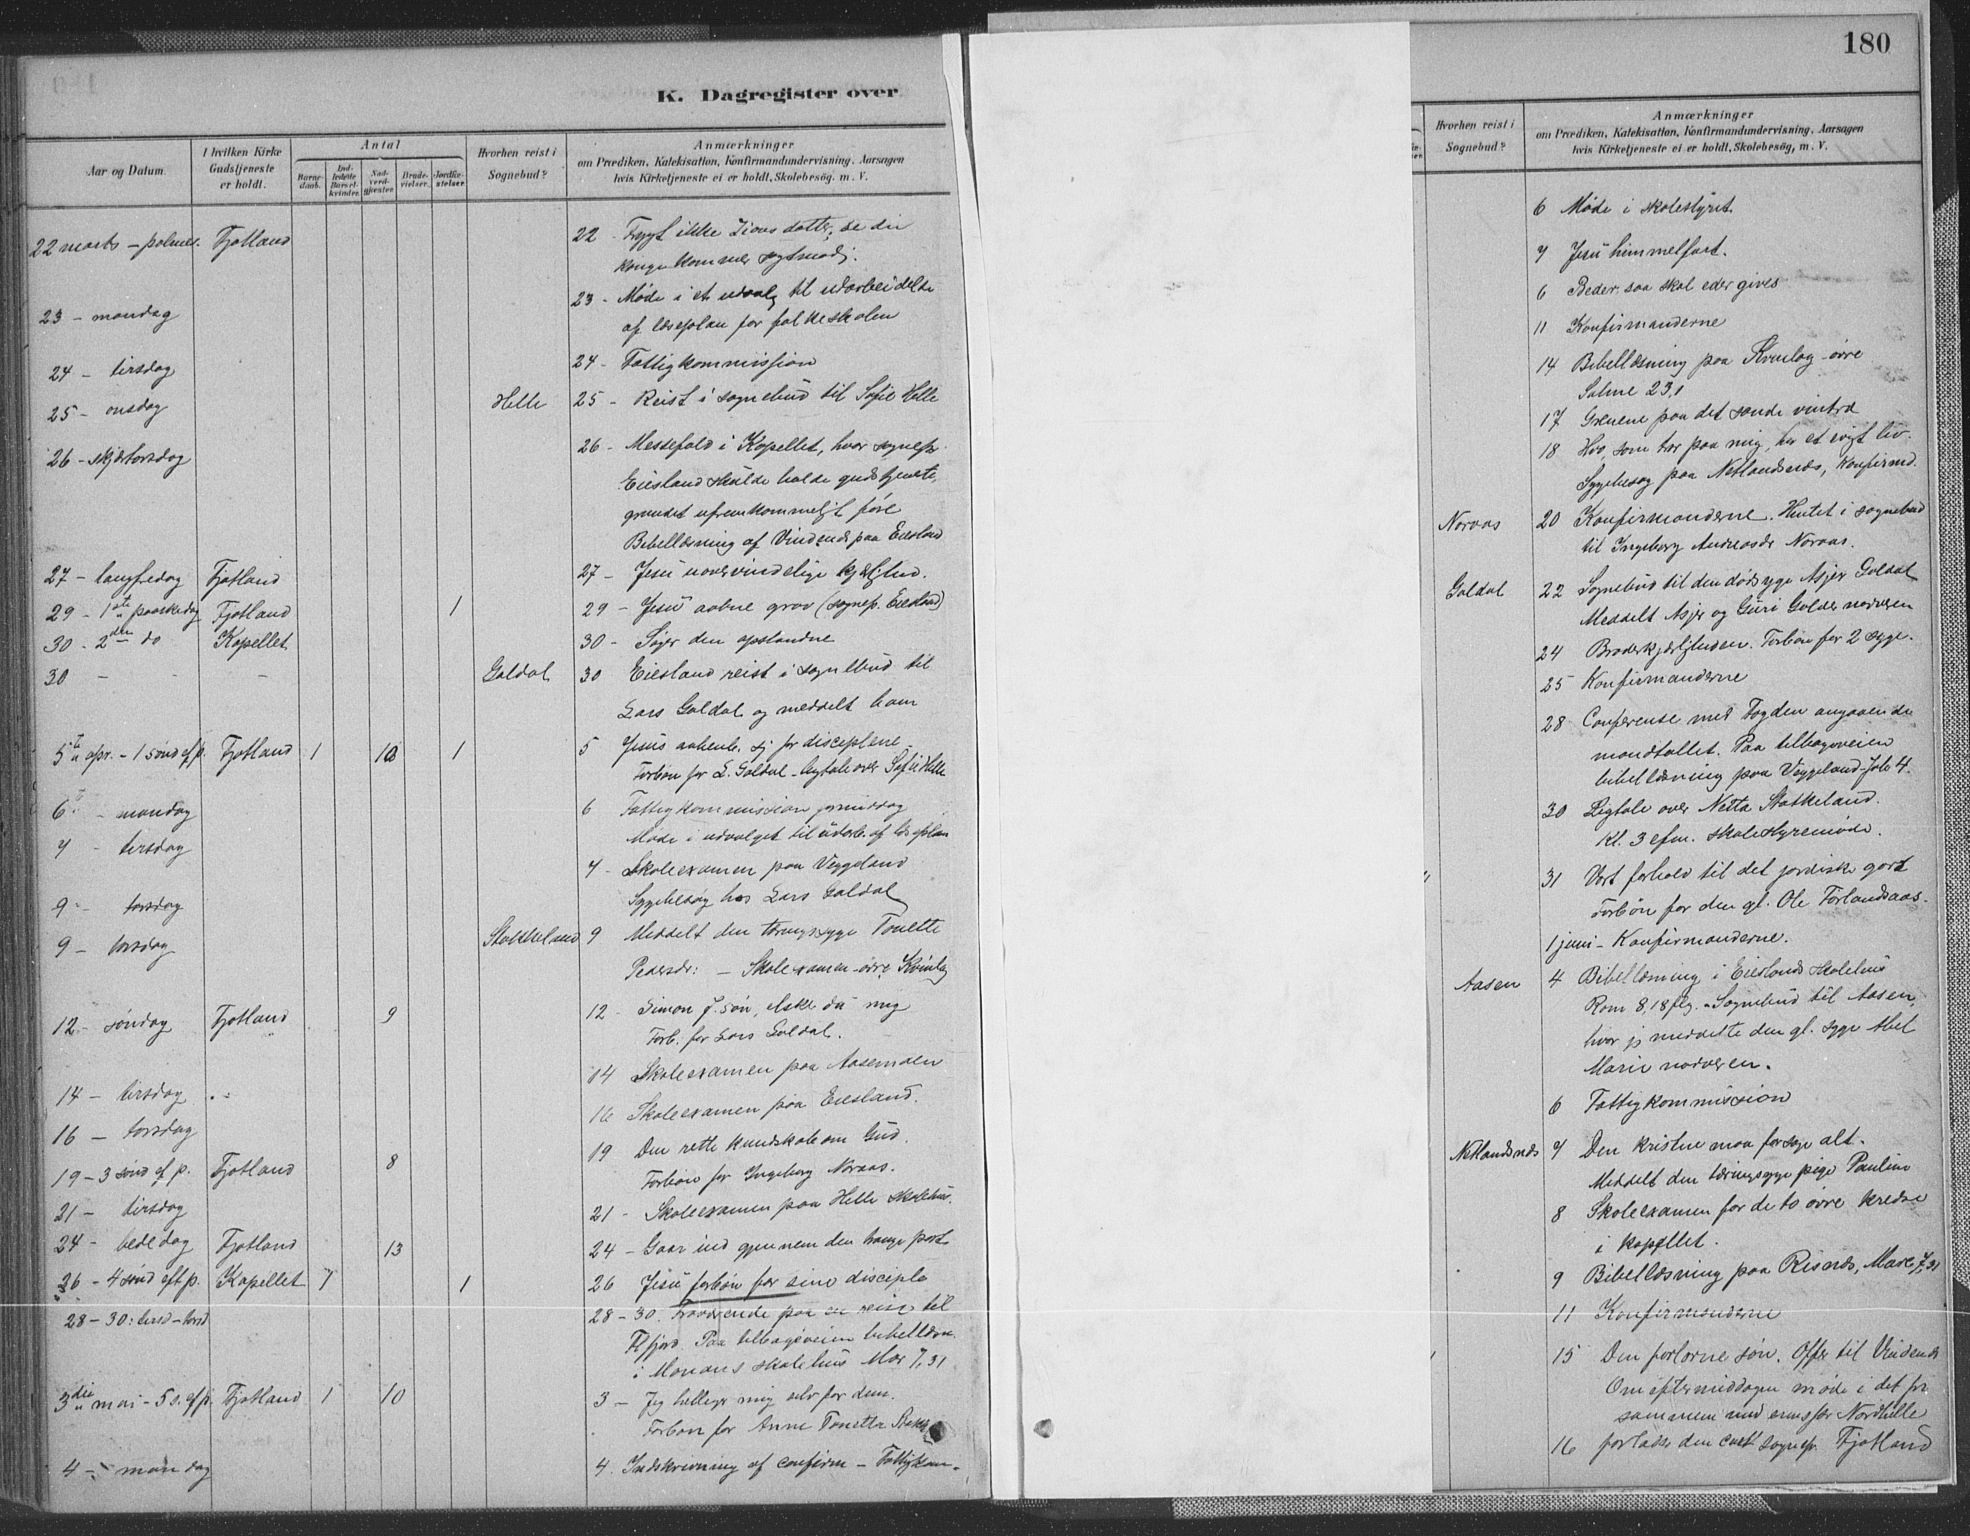 K. Dagregister over
Aar og Datum.
I hvilken Kirke Gudstjeneste er holdt.
Antal
Barnedaab.
Indledede Barselkvinder.
Nadverdgjæster.
Brudevielser.
Jordfæstelser.
Hvorhen reist i Sognebud?
Anmærkninger
om Prædiken, Katekisation, Konfirmandundervisning. Aarsagen
hvis Kirketjeneste ei er holdt, Skolebesög. m. V.
22 marts – palmes. Fjotland 22 - Frygt ikke Zions datter; se din
konge kommer sagtmodig.
23 - mandag 23 - Møde i et udvalg til udarbeidelse
af læseplan for folkeskolen
24 - tirsdag 24 - Fattigkommission
25 - onsdag Helle 25 - Reist i sognebud til Sofie Helle
26 - skjærtorsdag 26 - Messefald i Kapellet, hvor sognepr.
Eiesland skulde holde gudstjeneste,
grundet ufremkommeligt føre
Bibellæsning af Vindenes paa Eiesland
27 - langfredag Fjotland 27 - Jesu uovervindelige kjærlighed.
29 - 1ste paaskedag Fjotland 1 29 - Jesu aabne grav (sognep. Eiesland)
30 - 2den do Kapellet 30 - Søger den opstandne
30 - - - Galdal 30 Eiesland reist i sognebud til
Lars Galdal og meddelt ham
5te apr. - 1 sønd ef p. Fjotland 1 10 1 5 Jesus aabenb. sig for disciplene
Forbøn for L. Galdal - ligtale over Sofie Helle
6te - mandag 6 Fattigkommission formiddag
Møde i udvalget til udarb. af læseplan
7 - tirsdag 7 - Skoleexamen paa Veggeland
Sygebesøg hos Lars Galdal
9 - torsdag
9 - torsdag Stakkeland 9 Meddelt den tæringssyge Tonette
Pedersdr: - Skoleexamen øvre Kvinlog
12 - søndag Fjotland 9 12 - Simon J. søn, elsker du mig
Forb. for Lars Galdal.
14 - tirsdag 14 Skoleexamen paa Aasemoen
16 - torsdag 16 Skoleexamen paa Eiesland.
19 - 3 sønd ef p. Fjotland 8 19 Den rette kundskab om Gud.
Forbøn for Ingeborg Noraas.
21 - tirsdag 21 - Skoleexamen paa Helle skolehus.
24 - bededag Fjotland 13 24 - Gaar ind gjennem den trange port
26 - 4 sønd eft p. Kapellet 7 1 26 Jesu forbøn for sine disciple
28 - 30: tirsd - torsd 28 - 30. Fraværende paa en reise til
Flfjord. Paa tilbageveien bibellæsn.
i Monans skolehus Mar 7,31
3die mai - 5 s. ef p. Fjotland 1 10 3 - Jeg helliger mig selv for dem.
Forbøn for Anne Tonette Stakk
4 - mandag 4. Indskrivning af confirm - Fattigkom.
180
Hvorhen reist i Sognebud?
Anmærkninger
om Prædiken, Katekisation, Konfirmandundervisning. Aarsagen
hvis Kirketjeneste ei er holdt, Skolebesög, m. V.
6 Møde i skolestyret
7 Jesu himmelfart.
6 Beder, saa skal eder gives
11 Konfirmanderne
14 Bibellæsning paa Kvinlog øvre
Salme 23,1
17 Grenene paa det sande vintræ
18 Hvo, som tror paa mig, har et evigt liv.
Sygebesøg paa Netlandsnæs, Konfirmd.
Noraas 20 Konfirmanderne. Hentet i sognebud
til Ingeborg Andreasdr Noraas.
Galdal 22 Sognebud til den dødssyge Asjer Galdal
Meddelt Asjer og Guri Galdal nadveren
24 Broderkjærligheden. Forbøn for 2 syge.
25 Konfirmanderne
28 Conferense med Fogden angaaende
mandtallet. Paa tilbageveien
bibellæsning paa Veggeland Joh 4.
30 Ligtale over Netta Stakkeland.
Kl. 3 efm. skolestyremøde.
31 Vort forhold til det jordiske gods
Forbøn for den gl. Ole Forlandsaas.
1 juni - Konfirmanderne.
Aasen 4 Bibellæsning i Eieslands skolehus
Rom 8,18 flg. - Sognebud til Aasen,
hvor jeg meddelte den gl. syge Abel
Marie nadveren.
6 Fattigkommission
Netlandsnæs 7 Den kristne maa forsage alt.
Meddelt den tæringssyge pige Pauline
8 Skoleexamen for de to øvre kredse
i kapellet.
9 Bibellæsning paa Risnæs, Marc 7,31
11 Konfirmanderne
15 Den fortorne søn. Offer til Vindenes
Om eftermiddagen møde i det fri
sammen med emissær Nordhelle
16 forlader den const sognepr. Fjotland